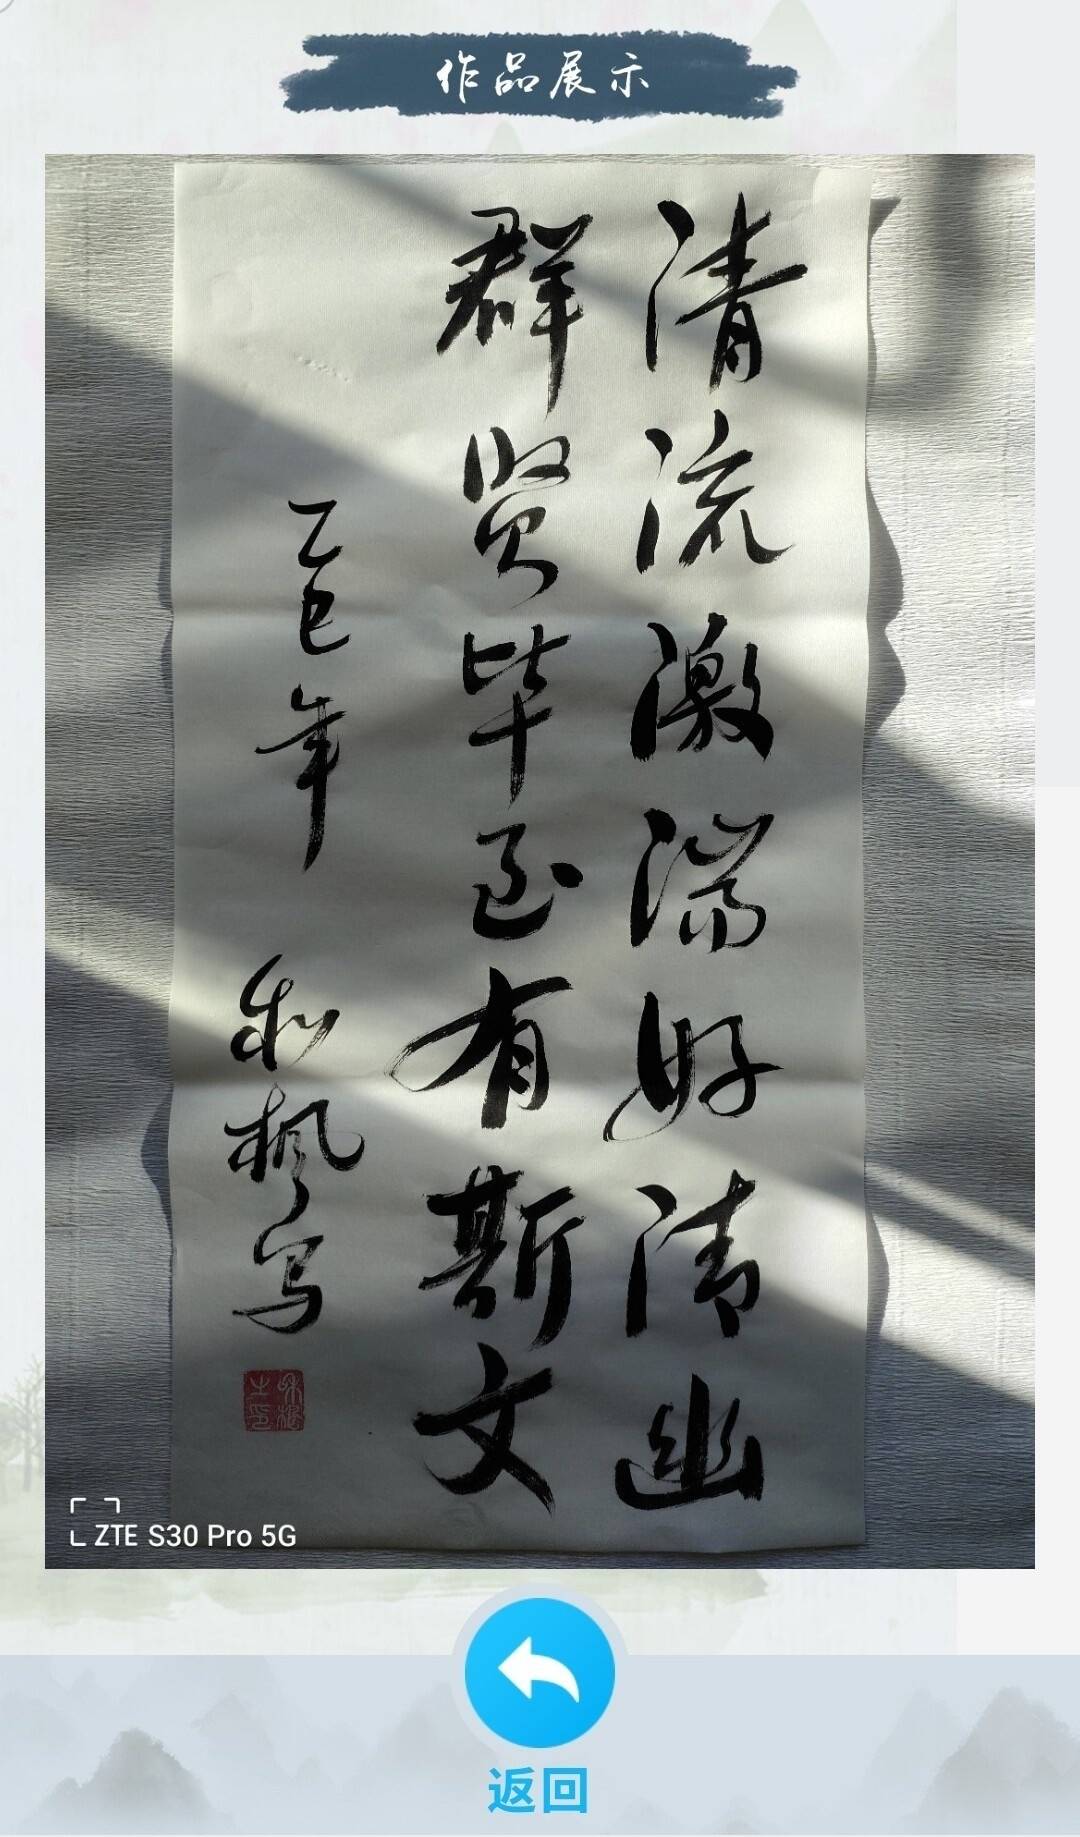 作品展示
清流激湍好清幽
群贤毕至有斯文
乙巳年 和枫写
ZTE S30 Pro 5G
返回